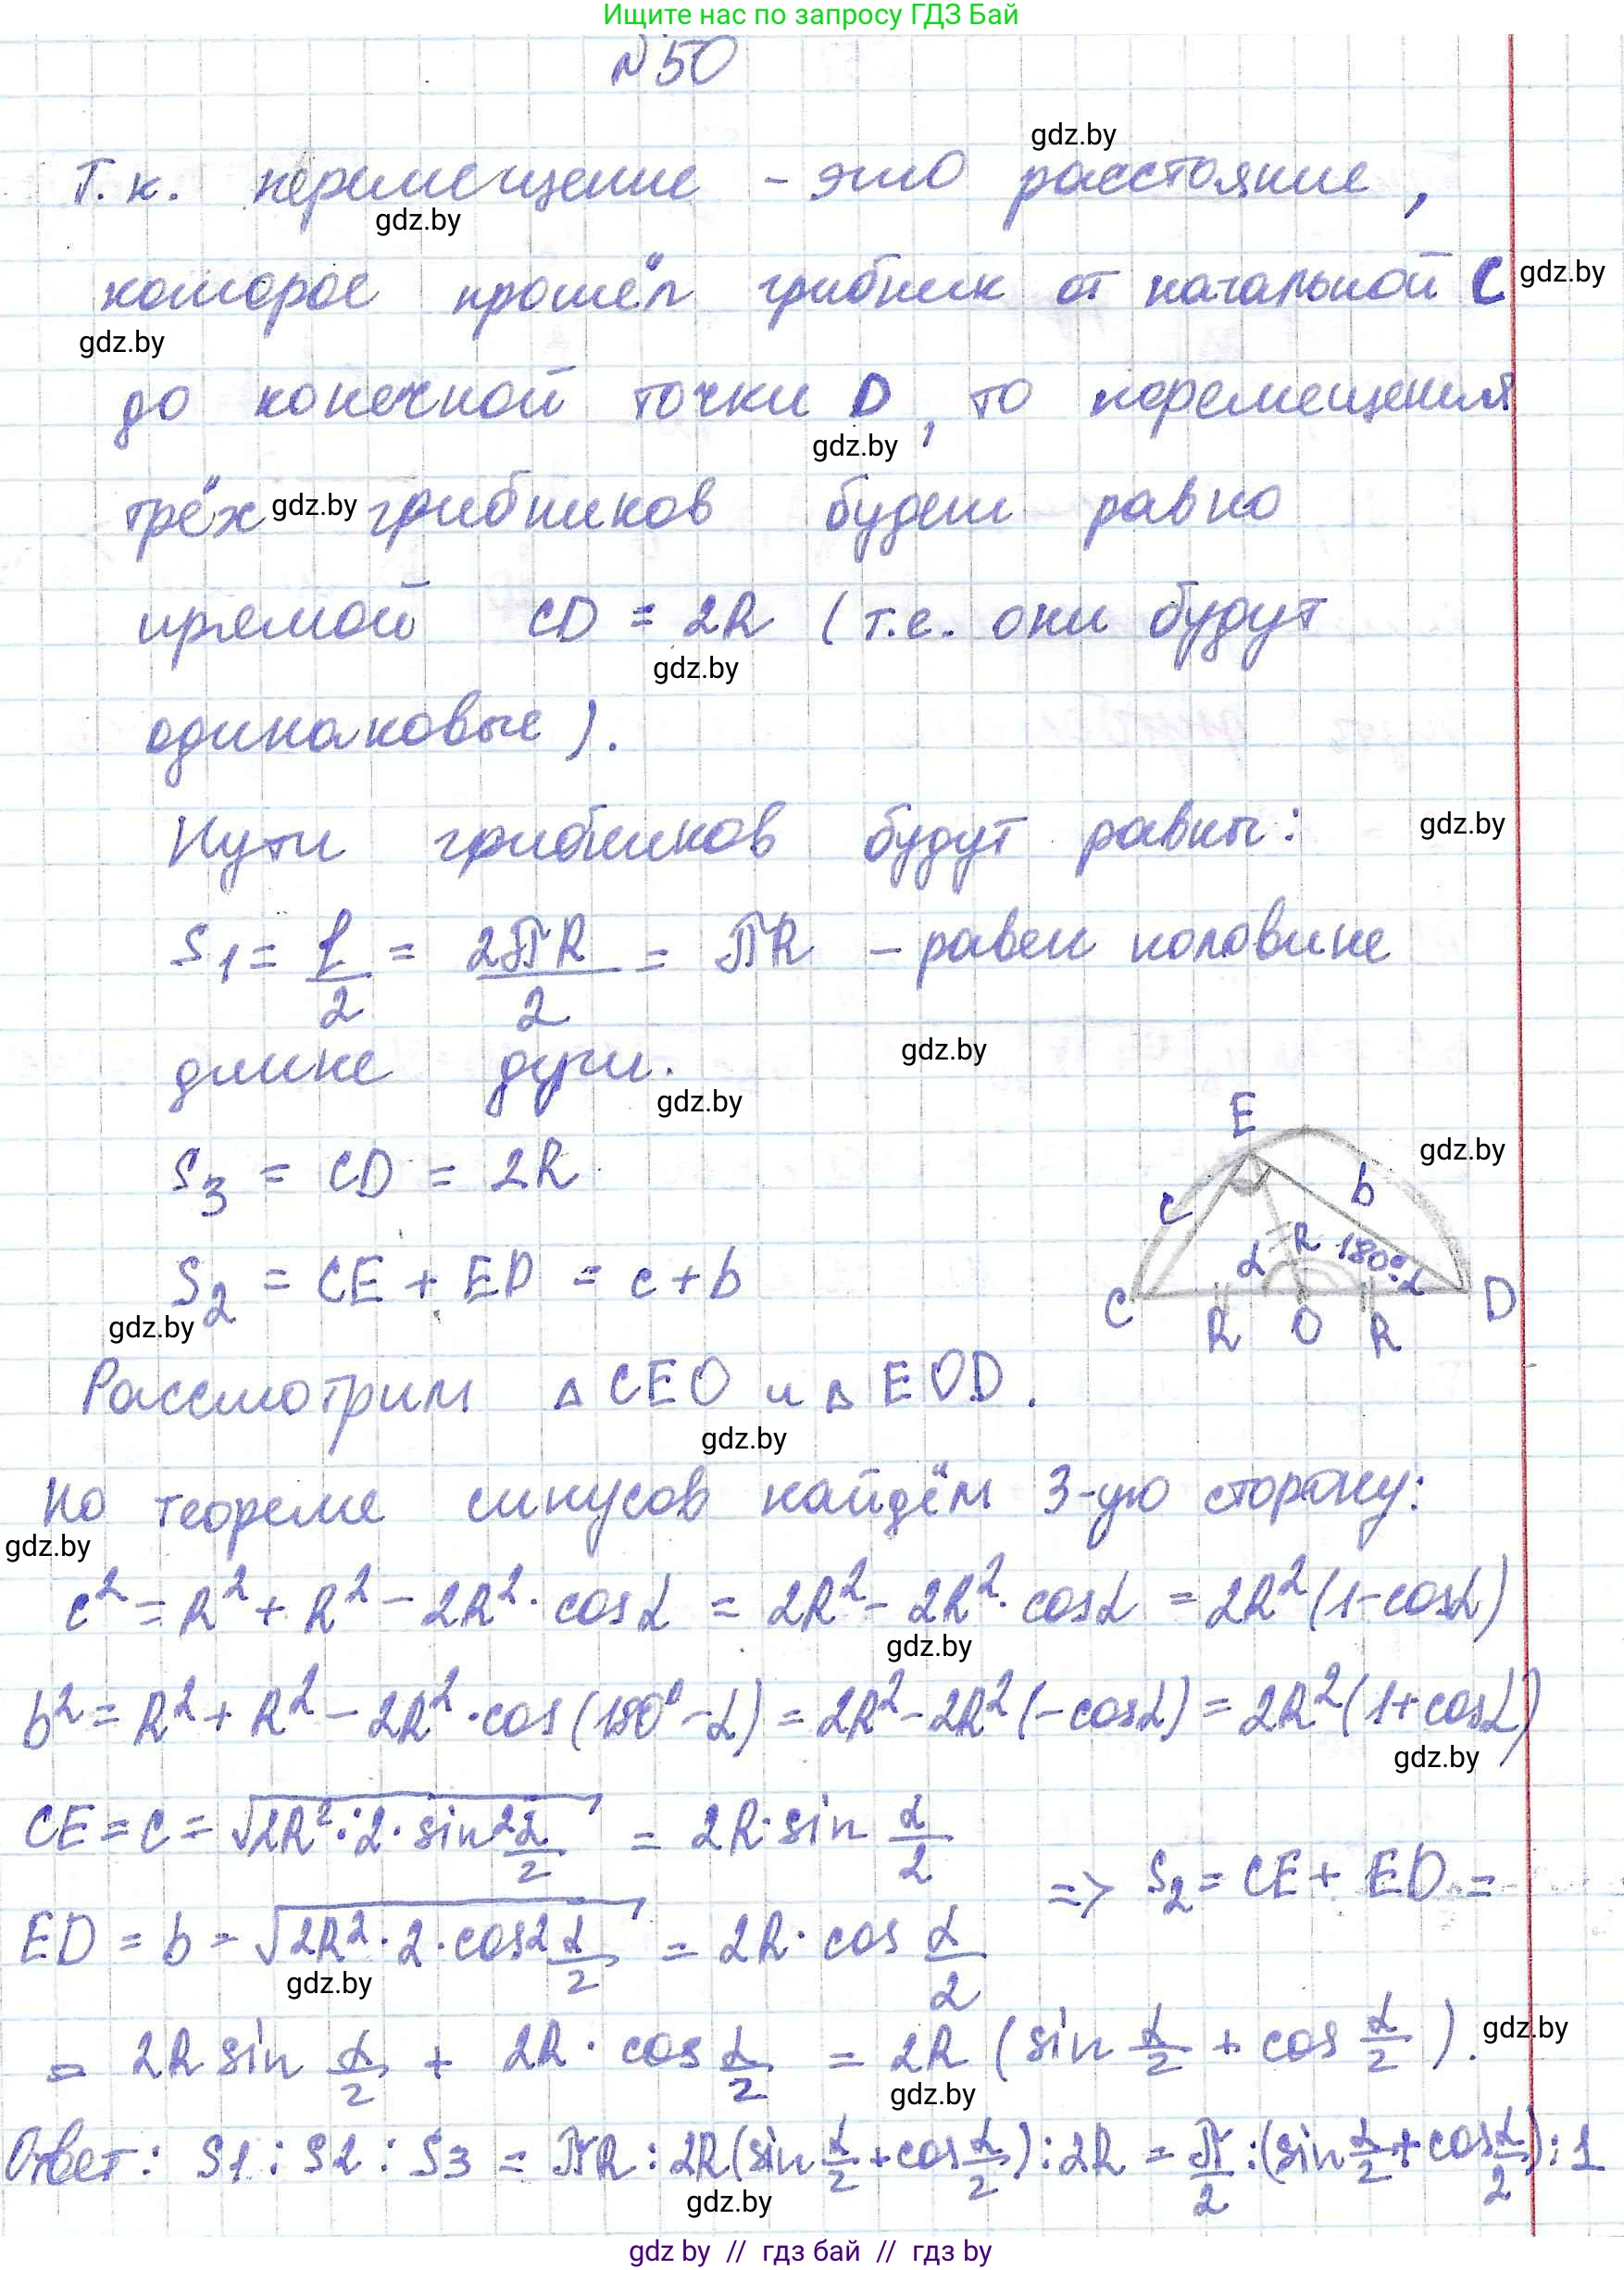 Ищите нас по запросу ГДЗ Бай
№50
gdz.by
Т.к. перемещение - это расстояние,
gdz.by
которое прошёл грибник от начальной C
gdz.by
gdz.by
до конечной точки D, то перемещения
gdz.by
трёх грибников будет равно
gdz.by
прямой CD = 2R (т.е. они будут
gdz.by
одинаковые).
Пути грибников будут равны:
gdz.by
S1 = l/2 = 2πR/2 = πR - равен половине
gdz.by
длине дуги.
gdz.by
S3 = CD = 2R
E
gdz.by
c
b
R
α
180°-α
C
D
R
O
R
S2 = CE + ED = c + b
gdz.by
Рассмотрим △CEO и △EOD.
gdz.by
По теореме синусов найдём 3-ую сторону:
gdz.by
c² = R² + R² - 2R² · cosα = 2R² - 2R² · cosα = 2R²(1-cosα)
gdz.by
b² = R² + R² - 2R² · cos(180° - α) = 2R² - 2R²(-cosα) = 2R²(1+cosα)
gdz.by
CE = c = √(2R² · 2 · sin² α/2) = 2R · sin α/2
=> S2 = CE + ED =
ED = b = √(2R² · 2 · cos² α/2) = 2R · cos α/2
gdz.by
= 2R sin α/2 + 2R · cos α/2 = 2R (sin α/2 + cos α/2).
gdz.by
gdz.by
Ответ: S1 : S2 : S3 = πR : 2R(sin α/2 + cos α/2) : 2R = π/2 : (sin α/2 + cos α/2) : 1
gdz.by
gdz by // гдз бай // гдз by